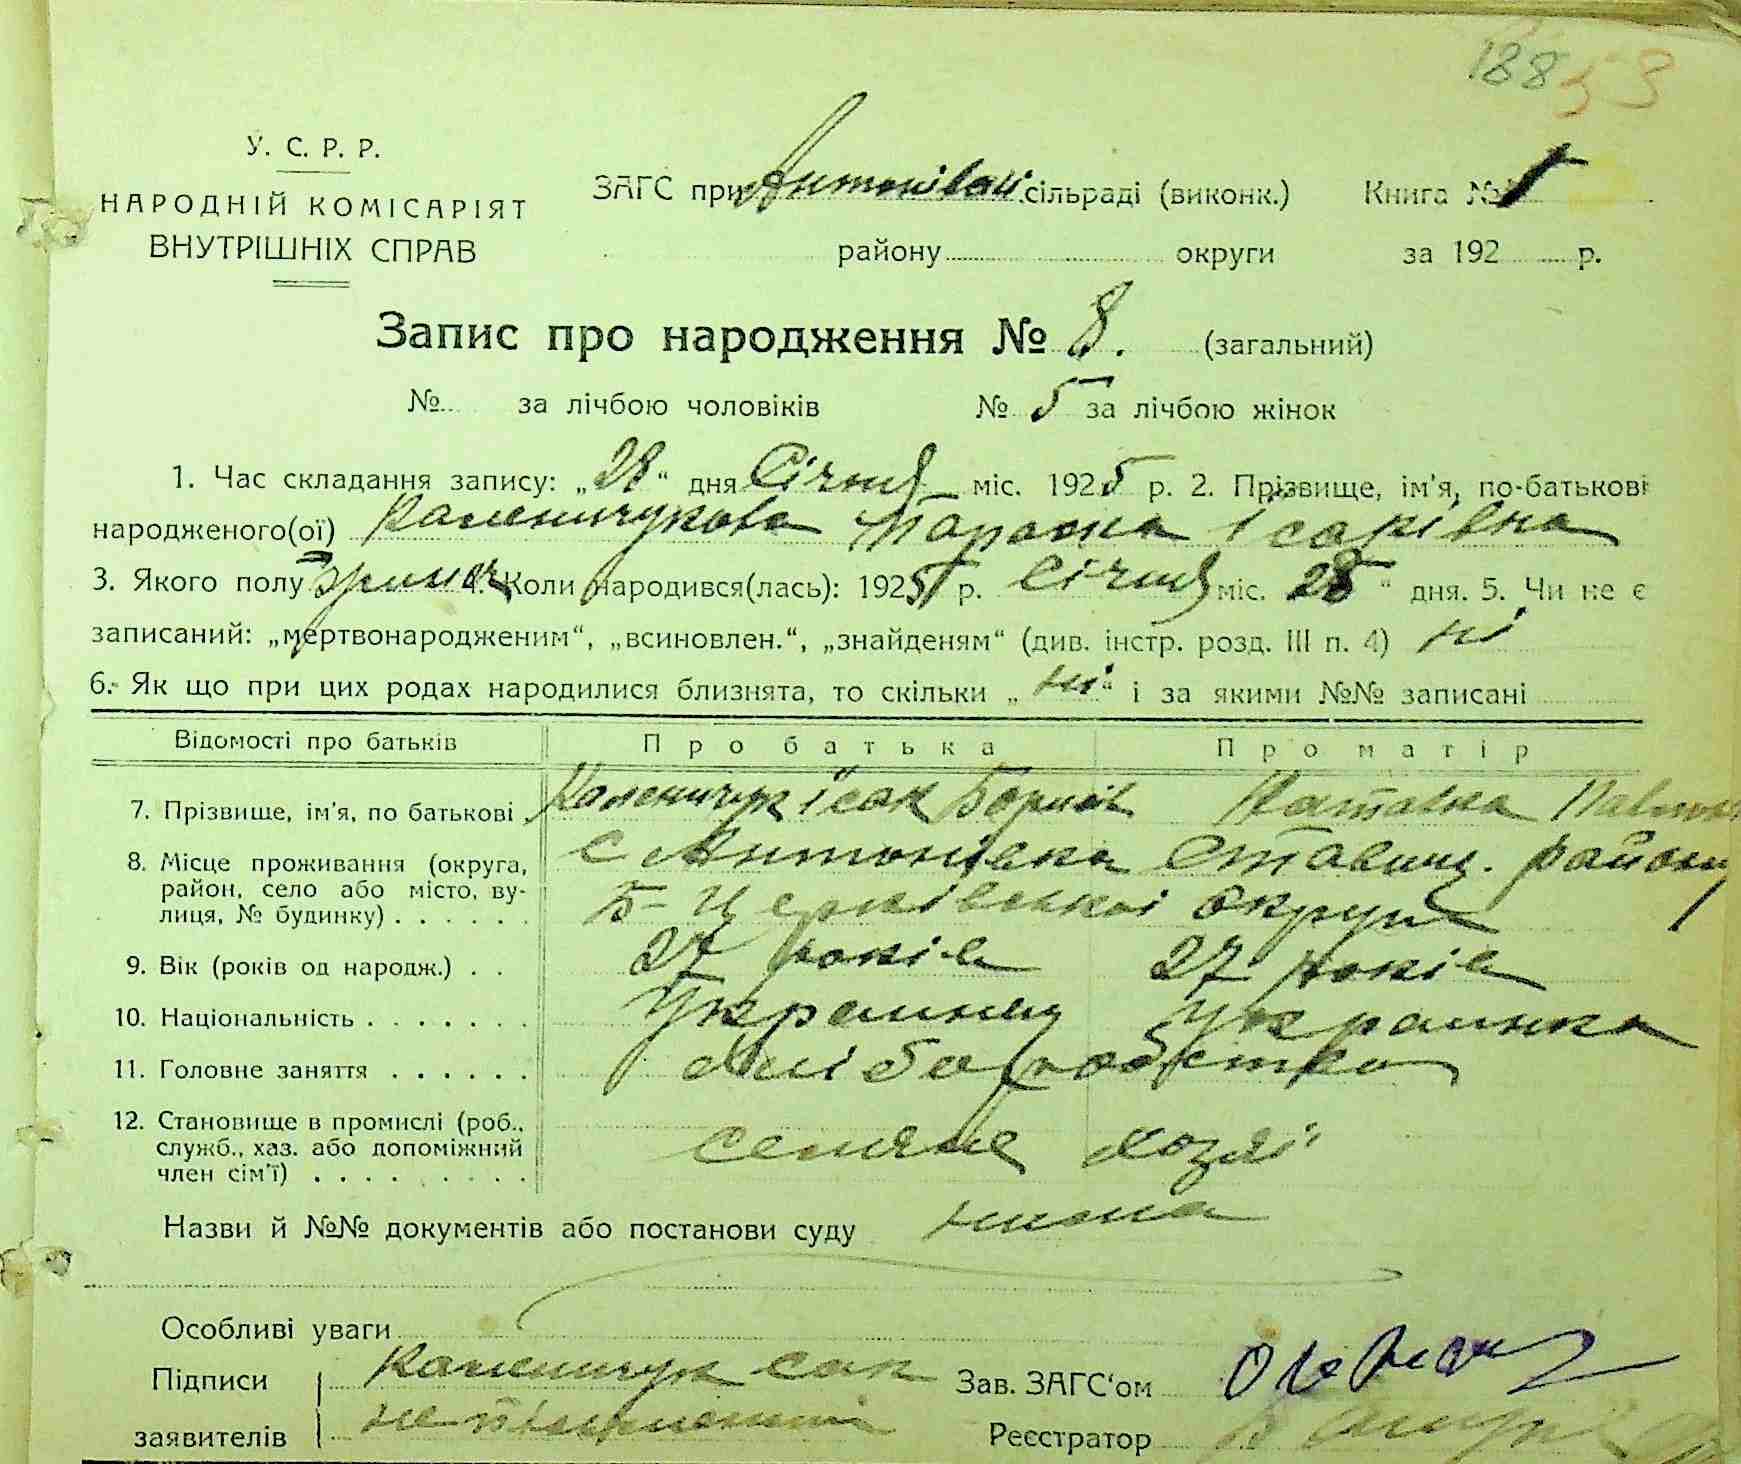 188 53
У. С. Р. Р.
НАРОДНІЙ КОМІСАРІЯТ
ВНУТРІШНІХ СПРАВ
ЗАГС при Антонівськ. сільраді (виконк.) Книга №
району округи за 192 р.
Запис про народження № 8. (загальний)
№ за лічбою чоловіків № 5 за лічбою жінок
1. Час складання запису: „28“ дня Січня міс. 1925 р. 2. Прізвище, ім'я, по-батькові
народженого(ої) Параска Ісаківна
3. Якого полу 4. Коли народився(лась): 1925 р. Січня міс. 28 “ дня. 5. Чи не є
записаний: „мертвонародженим“, „всиновлен.“, „знайденям“ (див. інстр. розд. III п. 4) ні
6. Як що при цих родах народилися близнята, то скільки „ ні “ і за якими №№ записані
Відомості про батьків Про батька Про матір
7. Прізвище, ім'я, по батькові Ісак Наталка
8. Місце проживання (округа,
район, село або місто, ву-
лиця, № будинку) . . . . . . с Антонівка Ставищ. району
Б-Церківської округи
9. Вік (років од народж.) . . 27 років 27 років
10. Національність . . . . . . . Українец Українка
11. Головне заняття . . . . . . хліборобство
12. Становище в промислі (роб.,
служб., хаз. або допоміжний
член сім'ї) . . . . . . . . . селяне хозяї
Назви й №№ документів або постанови суду нима
Особливі уваги
Підписи сак Зав. ЗАГС'ом
заявителів Реєстратор